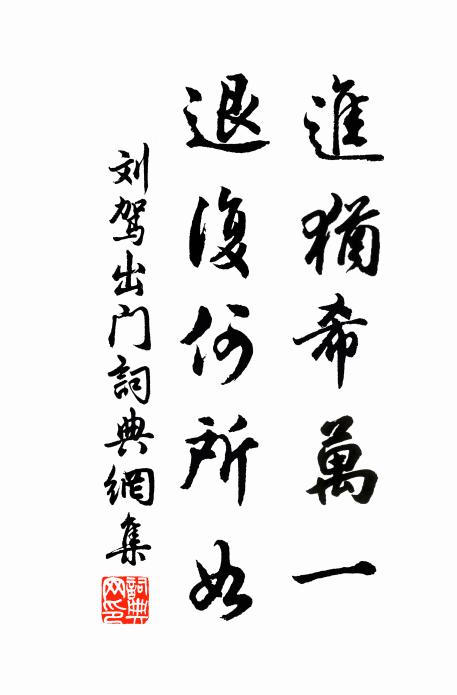 進猶希萬一
退復何所如
刘驾出门詞典網集
詞典網印